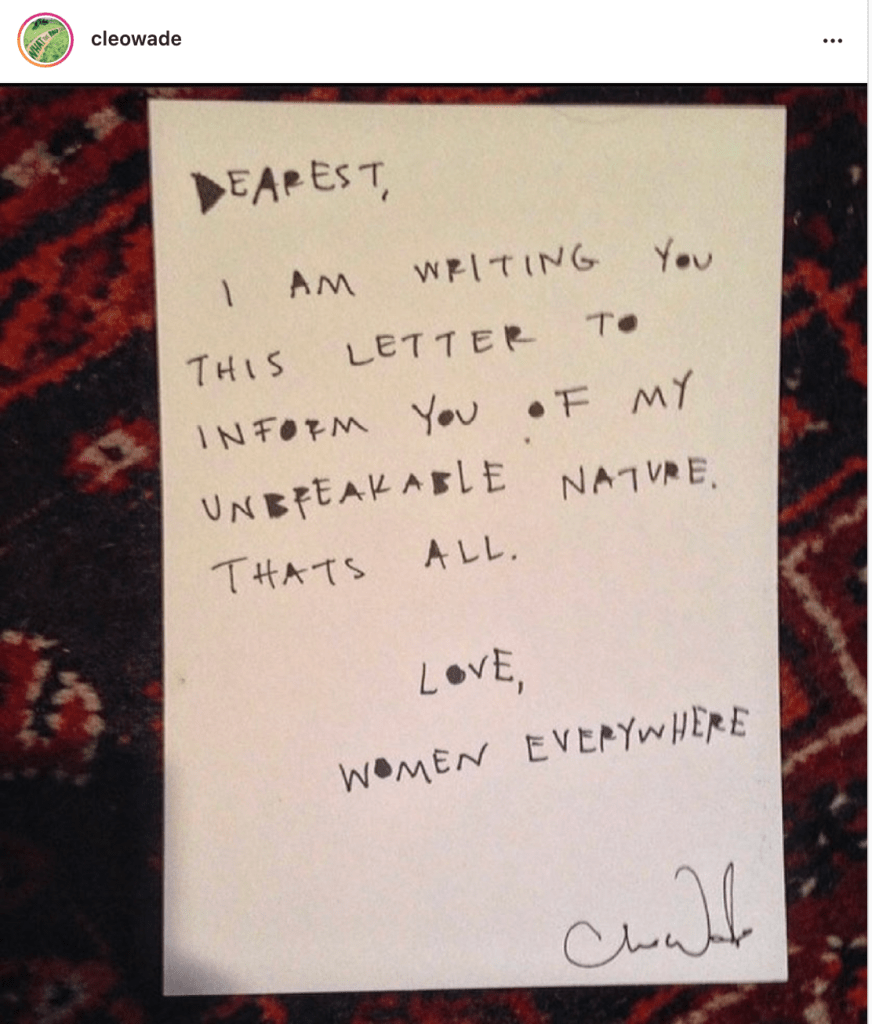 cleowade
DEAREST,
I AM WRITING YOU
THIS LETTER TO
INFORM YOU OF MY
UNBREAKABLE NATURE.
THATS ALL.
LOVE,
WOMEN EVERYWHERE
Cleo Wade